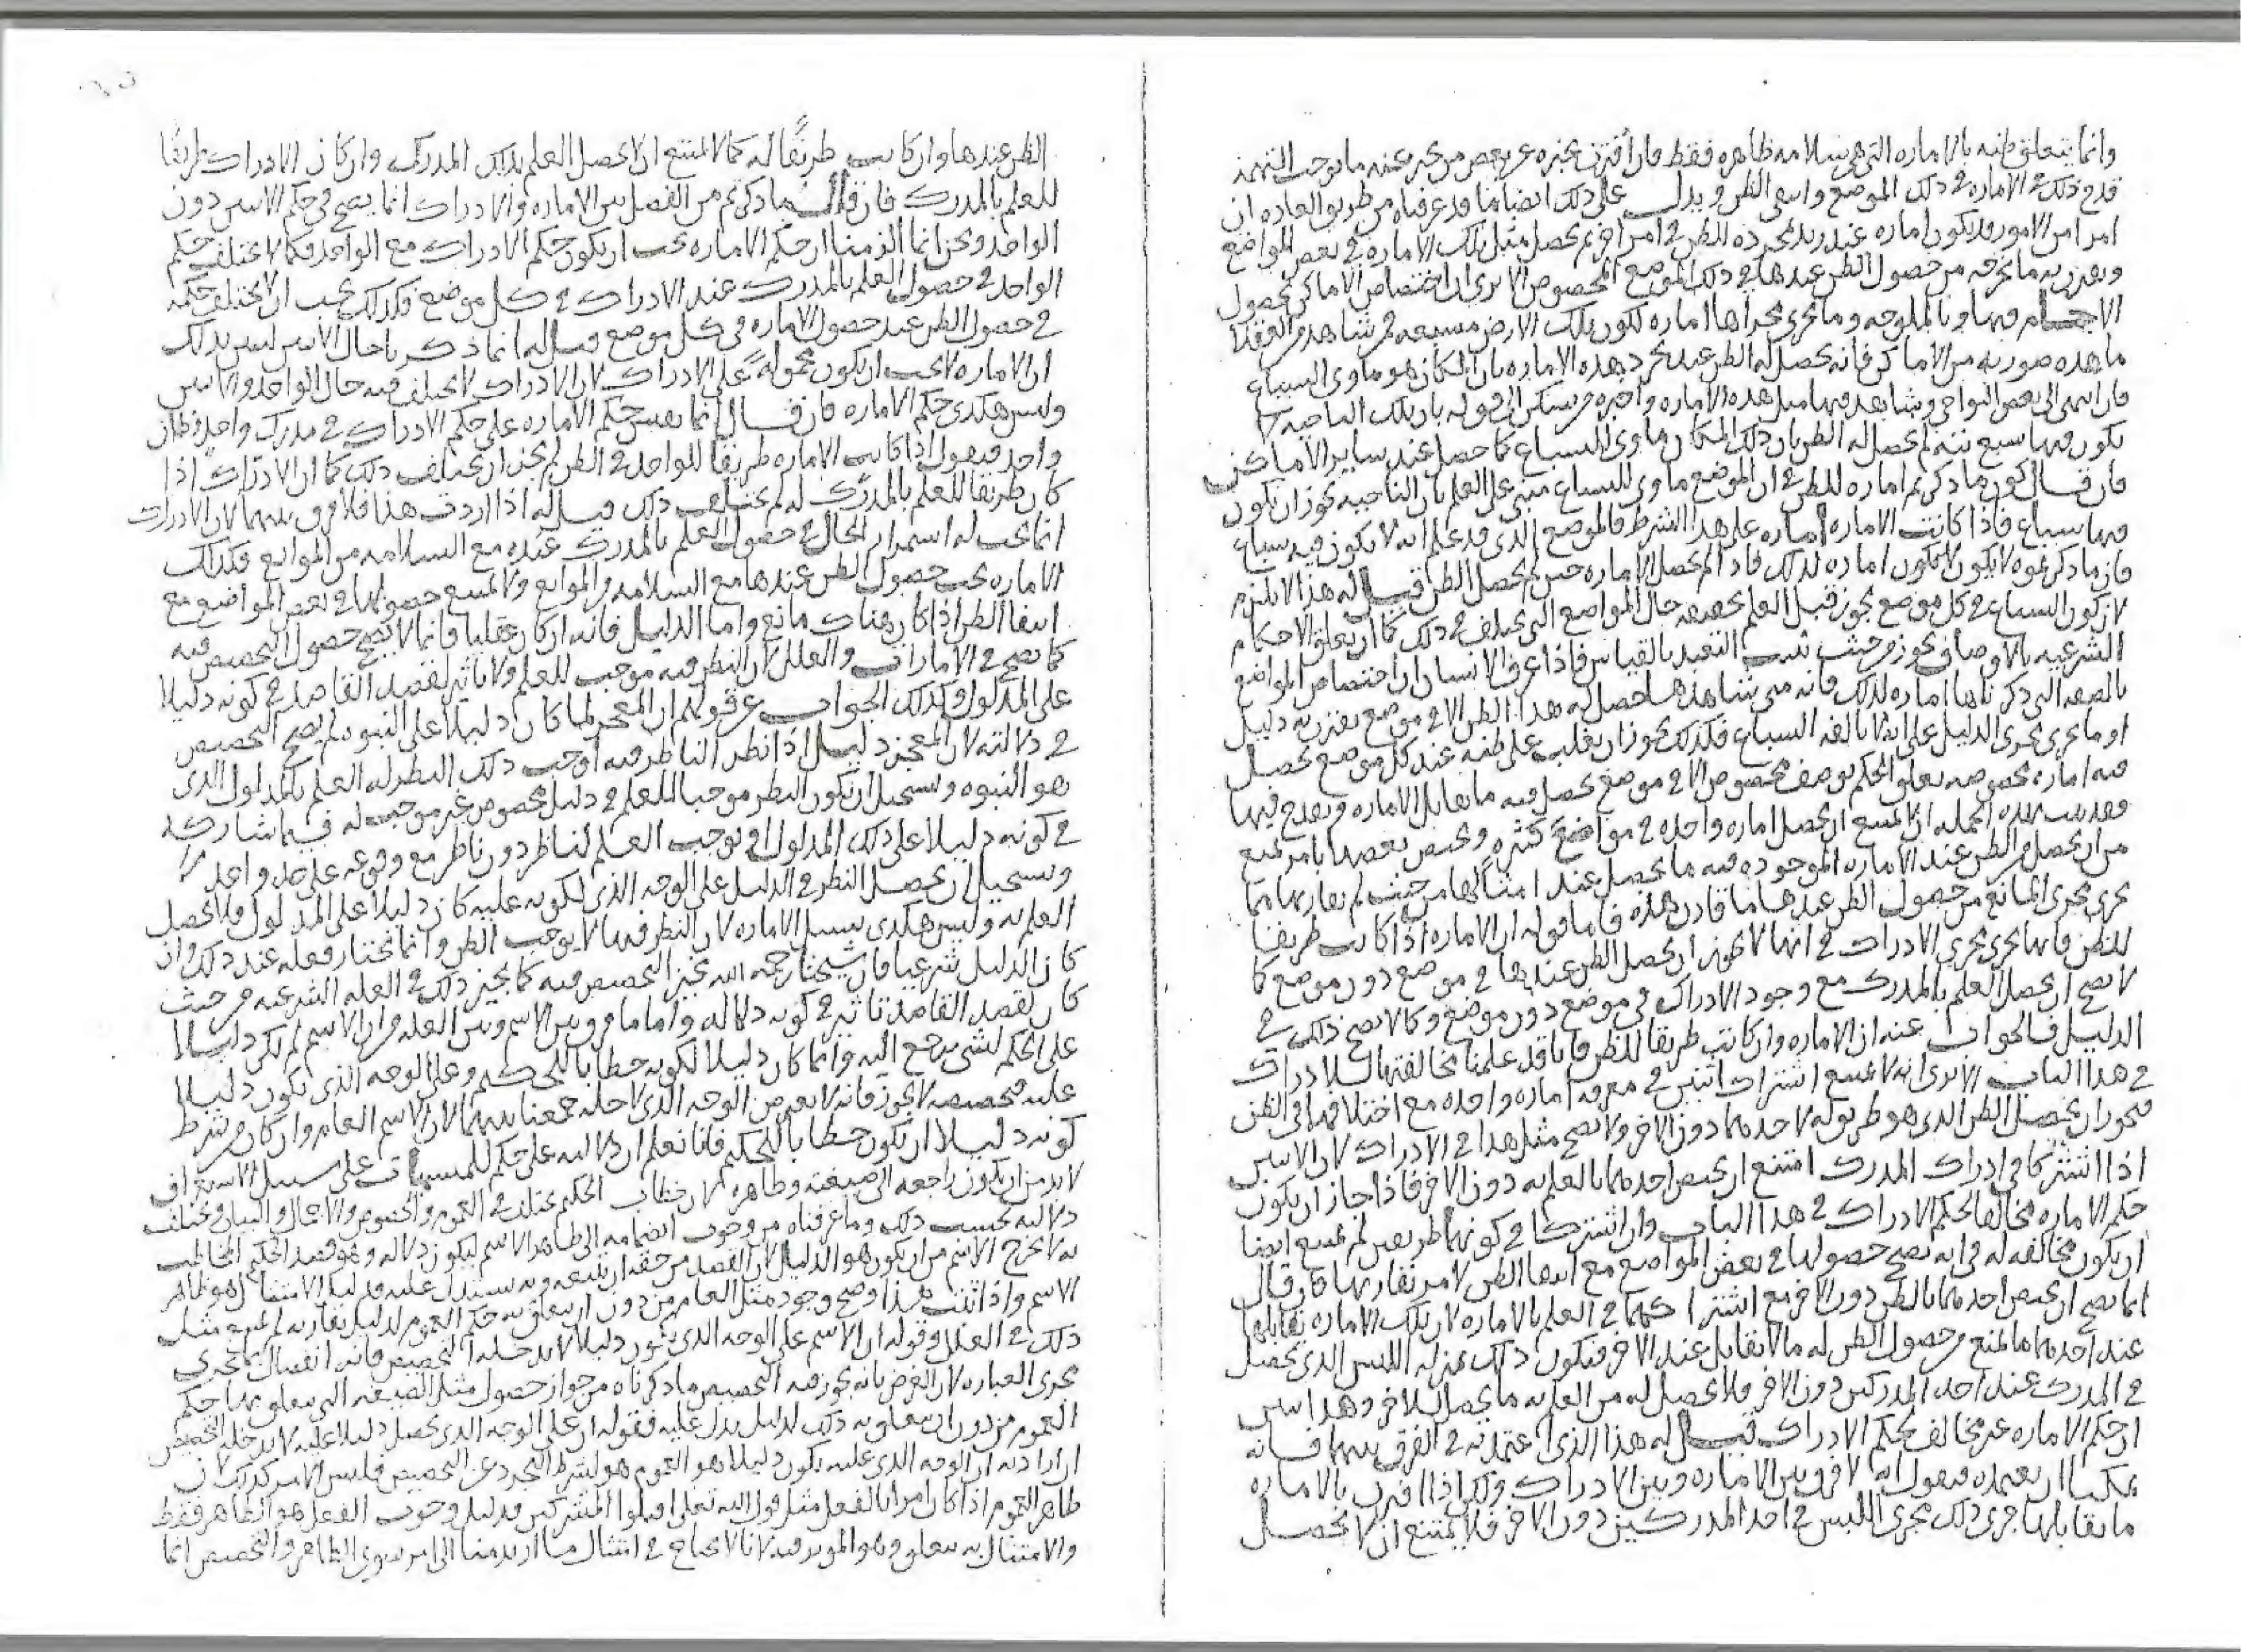 وانما يتعلق ظنه بالاماره التي هي سلامه ظاهره فقط فان اقترن بخبره عن بعض من يخبر عنه ما يوجب التهمه
قدح ذلك في الاماره في ذلك الموضع وانتفى الظن ويدل على ذلك ايضا ما قد عرفناه من طريق العاده ان
امرا من الامور قد يكون اماره عند زيد لمجرده للظن في امر اخر ثم يحصل مثل تلك الاماره في بعض المواضع
ويقترن به ما يخرجه من حصول الظن عندها في ذلك الموضع المخصوص الا ترى ان اختصاص الاماكن بحصول
الاجام فيها وبالملوحه وما يجري مجراها اماره لكون تلك الارض مسبعه فمن شاهد من العقلا
ما هذه صورته من الاماكن فانه يحصل له الظن عند تجرد هذه الاماره بان المكان هو ماوى السباع
فان انتهى الى بعض النواحي وشاهد فيها مثل هذه الاماره واخبره من يسكن الى قوله بان تلك الناحيه لا
يكون فيها سبع بته لم يحصل له الظن بان ذلك المكان ماوى للسباع كما حصل عند ساير الاماكن
فان قال كون ما ذكرتم اماره للظن في ان الموضع ماوى للسباع مبني على العلم بان الناحيه يجوز ان يكون
فيها سباع فاذا كانت الاماره اماره على هذا الشرط فالموضع الذي قد علم انه لا يكون فيه سباع
فان ما ذكرتموه لا يكون اماره لذلك فاذا لم يحصل الاماره حين لم يحصل الظن قيل له هذا لا يلزم
لان كون السباع في كل موضع يجوز قبل العلم بحقيقه حال المواضع التي يختلف في ذلك كما ان تعلق الاحكام
الشرعيه بالاوصاف يجوز من حيث ثبت التعبد بالقياس فاذا عرف الانسان ان اختصاص المواضع
بالصفه التي ذكرناها اماره لذلك فانه متى شاهدها حصل له هذا الظن الا في موضع يقترن به دليل
او ما يجري مجرى الدليل على السباع فكذلك يجوز ان يغلب على ظنه عند كل موضع يحصل
فيه اماره مخصوصه تعلق الحكم بوصف مخصوص الا في موضع يحصل فيه ما يقابل الاماره ويقدح فيها
فقد ثبت بهذه الجمله انه لا يمتنع ان يحصل اماره واحده في مواضع كثيره ويختص بعضها بامر يمنع
من ان يحصل الظن عند الاماره الموجوده فيه ما يحصل عند امثالها من حيث لم يقارنها ما
يجري مجرى المانع من حصول الظن عندها ما قارن هذه فاما قوله ان الاماره اذا كانت طريقا
للظن فانها يجري مجرى الادراك في انها لا يجوز ان يحصل الظن عندها في موضع دون موضع كما
لا يصح ان يحصل العلم بالمدرك مع وجود الادراك في موضع دون موضع وكما لا يصح ذلك في
الدليل فالجواب عنه ان الاماره وان كانت طريقا للظن فانا قد علمنا مخالفتها للادراك
في هذا الباب الا ترى انه لا يمتنع اشتراك اثنين في معرفه اماره واحده مع اختلافهما في الظن
فيجوز ان يحصل الظن الذي هو طريق له لاحدهما دون الاخر ولا يصح مثل هذا في الادراك لان الاثنين
اذا اشتركا في ادراك المدرك امتنع ان يختص احدهما بالعلم به دون الاخر فاذا جاز ان يكون
حكم الاماره مخالفا لحكم الادراك في هذا الباب وان اشتركا في كونهما طريقين لم يمتنع ايضا
ان يكون مخالفه له في انه يصح حصولها في بعض المواضع مع انتفا الظن لامر يقارنها فان قال
انما يصح ان يختص احدهما بالظن دون الاخر مع اشتراكهما في العلم بالاماره لان تلك الاماره يقابلها
عند احدهما ما يمنع من حصول الظن له ما لا يقابل عند الاخر فيكون ذلك بمنزله اللبس الذي يحصل
في المدرك عند احد المدركين دون الاخر فلا يحصل له من العلم به ما يحصل للاخر وهذا يبين
ان حكم الاماره غير مخالف لحكم الادراك قيل له هذا الذي اعتمدته في الفرق بينهما فانه
يمكننا ان نعتمده فنقول انه لا فرق بين الاماره وبين الادراك ولكن اذا اقترن بالاماره
ما يقابلها جرى ذلك مجرى اللبس في احد المدركين دون الاخر فلا يمتنع ان لا يحصل
الظن عندها وان كانت طريقا له كما لا يمتنع ان لا يحصل العلم بذلك المدرك وان كان الادراك طريقا
للعلم بالمدرك فان قال ما ذكرتم من الفصل بين الاماره والادراك انما يصح في حكم الاثنين دون
الواحد ونحن انما الزمنا ان حكم الاماره يجب ان يكون حكم الادراك مع الواحد فكما لا يختلف حكم
الواحد في حصول العلم بالمدرك عند الادراك في كل موضع فكذلك يجب ان لا يختلف حكمه
في حصول الظن عند حصول الاماره في كل موضع قيل له انما ذكرنا حال الاثنين ليبين بذلك
ان الاماره لا يجب ان يكون محموله على الادراك لان الادراك لا يختلف فيه حال الواحد والاثنين
وليس هكذى حكم الاماره فان قال انما نقيس حكم الاماره على حكم الادراك في مدرك واحد وظان
واحد فنقول اذا كانت الاماره طريقا للواحد في الظن لم يجز ان يختلف ذلك كما ان الادراك اذا
كان طريقا للعلم بالمدرك له لم يختلف ذلك قيل له اذا اردت هذا فلا فرق بينهما لان الادراك
انما يجب له استمرار الحال في حصول العلم بالمدرك عنده مع السلامه من الموانع فكذلك
الاماره يجب حصول الظن عندها مع السلامه من الموانع ولا يمتنع حصولها في بعض المواضع مع
انتفا الظن اذا كان هناك مانع واما الدليل فانه ان كان عقليا فانما لا يصح حصول التخصيص فيه
كما يصح في الامارات والعلل لان النظر فيه موجب للعلم ولا تاثير لقصد القاصد في كونه دليلا
على المدلول وكذلك الجواب عن قولهم ان المعجز لما كان دليلا على النبوه لم يصح التخصيص
في دلالته لان المعجز دليل اذا نظر الناظر فيه اوجب ذلك النظر له العلم بالمدلول الذي
هو النبوه ويستحيل ان يكون النظر موجبا للعلم في دليل مخصوص غير موجب له فيما شاركه
في كونه دليلا على ذلك المدلول او يوجب العلم لناظر دون ناظر مع وقوعه على حد واحد
ويستحيل ان يحصل النظر في الدليل على الوجه الذي لكونه عليه كان دليلا على المدلول فلا يحصل
العلم به وليس هكذى سبيل الاماره لان النظر فيها لا يوجب الظن وانما نختار فعله عند ذلك وان
كان الدليل شرعيا فان شيخنا رحمه الله يجيز التخصيص فيه كما يجيز ذلك في العله الشرعيه من حيث
كان لقصد القاصد تاثير في كونه دلاله واما ما فرق بين الاسم وبين العله من ان الاسم لم يكن دليلا
على الحكم لشي يرجع اليه وانما كان دليلا لكونه خطابا للحكيم وعلى الوجه الذي يكون دليلا
عليه فتخصيصه لا يجوز فانه لا يعترض الوجه الذي لاجله جمعنا بينهما لان الاسم العام وان كان من شرط
كونه دليلا ان يكون خطابا للحكيم فانا نعلم ان دلالته على حكم للمسميات على سبيل الاستغراق
لا بد من ان يكون راجعه الى صيغته وظاهره لان خطاب الحكيم يختلف في العموم والخصوص والاجمال والبيان ويختلف
دلالته بحسب ذلك وما عرفناه من وجوب انضمامه الى ظاهر الاسم ليكون دلاله وهو قصد الحكيم المخاطب
به لا يخرج الاسم من ان يكون هو الدليل لان القصد من حقه ان يتبعه وبه يستدل عليه فدليل الامتثال هو ظاهر
الاسم واذا ثبت هذا وصح وجود مثل العام من دون ان يتعلق به حكم العموم لدليل يقارنه لم يمتنع مثل
ذلك في العلل وقوله ان الاسم على الوجه الذي يكون دليلا لا يدخله التخصيص فانه انفصال يجري
مجرى العباره لان الغرض بانه يجوز فيه التخصيص ما ذكرناه من جواز حصول مثل الصيغه التي يتعلق بها حكم
العموم من دون ان يتعلق به ذلك لدليل يدل عليه فقوله ان على الوجه الذي يحصل دليلا عليه لا يدخله التخصيص
ان اراد به ان الوجه الذي عليه يكون دليلا هو العموم هو لشرط التجرد عن التخصيص فليس الامر كذلك لان
ظاهر العموم اذا كان امرا بالفعل مثل قول الله تعلى اقتلوا المشركين فدليل وجوب الفعل هو الظاهر فقط
والامتثال به يتعلق وهو الموثر فيه لانا لا نحتاج في امتثال ما اريد منا الى امر سوى الظاهر والتخصيص انما